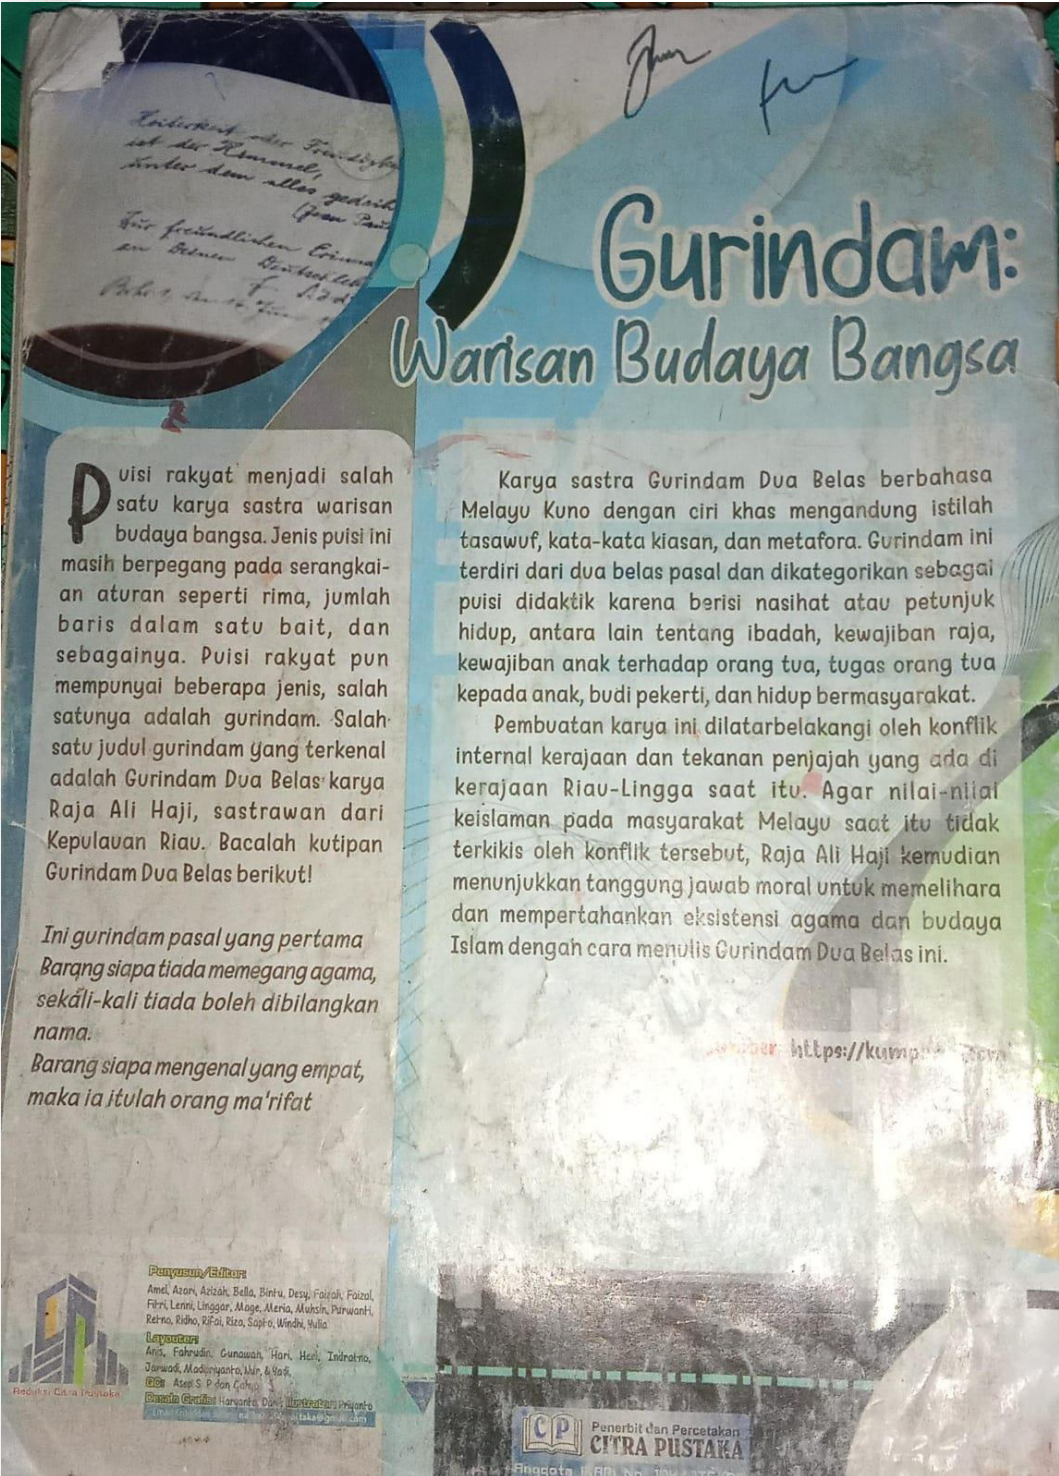 ist der Himmel,
unter dem alles
Gurindam:
Warisan Budaya Bangsa
Puisi rakyat menjadi salah
satu karya sastra warisan
budaya bangsa. Jenis puisi ini
masih berpegang pada serangkai-
an aturan seperti rima, jumlah
baris dalam satu bait, dan
sebagainya. Puisi rakyat pun
mempunyai beberapa jenis, salah
satunya adalah gurindam. Salah
satu judul gurindam yang terkenal
adalah Gurindam Dua Belas karya
Raja Ali Haji, sastrawan dari
Kepulauan Riau. Bacalah kutipan
Gurindam Dua Belas berikut!
Ini gurindam pasal yang pertama
Barang siapa tiada memegang agama,
sekali-kali tiada boleh dibilangkan
nama.
Barang siapa mengenal yang empat,
maka ia itulah orang ma'rifat
Karya sastra Gurindam Dua Belas berbahasa
Melayu Kuno dengan ciri khas mengandung istilah
tasawuf, kata-kata kiasan, dan metafora. Gurindam ini
terdiri dari dua belas pasal dan dikategorikan sebagai
puisi didaktik karena berisi nasihat atau petunjuk
hidup, antara lain tentang ibadah, kewajiban raja,
kewajiban anak terhadap orang tua, tugas orang tua
kepada anak, budi pekerti, dan hidup bermasyarakat.
Pembuatan karya ini dilatarbelakangi oleh konflik
internal kerajaan dan tekanan penjajah yang ada di
kerajaan Riau-Lingga saat itu. Agar nilai-nilai
keislaman pada masyarakat Melayu saat itu tidak
terkikis oleh konflik tersebut, Raja Ali Haji kemudian
menunjukkan tanggung jawab moral untuk memelihara
dan mempertahankan eksistensi agama dan budaya
Islam dengah cara menulis Gurindam Dua Belas ini.
Penyusun/Editor:
Amel, Azari, Azizah, Bella, Bintu, Desy, Faizah, Faizal,
Fitri, Lenni, Linggar, Mage, Meria, Muhsin, Purwanti,
Retno, Ridho, Rifai, Riza, Sapto, Windhi, Yulia
Layouter:
Anis, Fahrudin, Gunawan, Hari, Heri, Indratno,
QC: Asep S. P dan
Desain Grafis: Haryanto, Dani, Ilustrator: Priyanto
Redaksi Citra Pustaka
CP
Penerbit dan Percetakan
CITRA PUSTAKA
Anggota